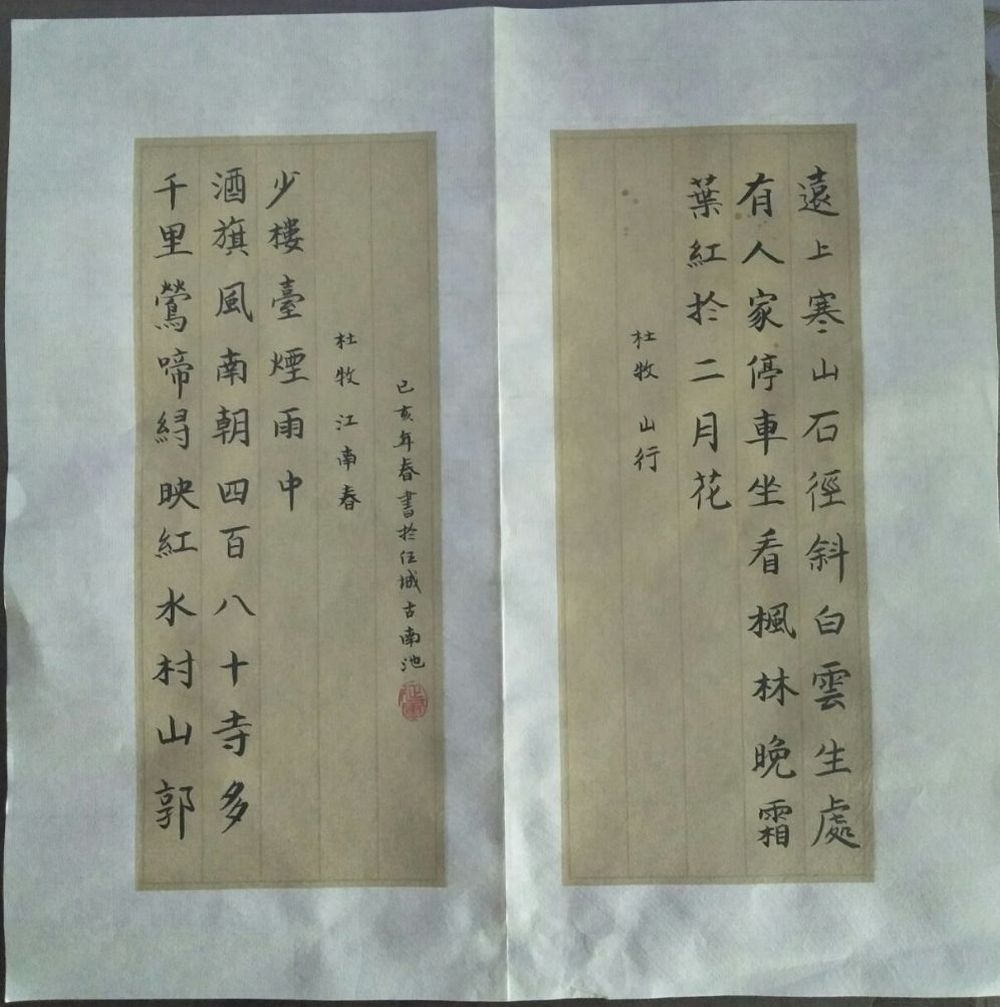 遠上寒山石徑斜白雲生處
有人家停車坐看楓林晚霜
葉紅於二月花
杜牧 山行
千里鶯啼綠映紅水村山郭
酒旗風南朝四百八十寺多
少樓臺煙雨中
杜牧 江南春
己亥年春書於任城古南池